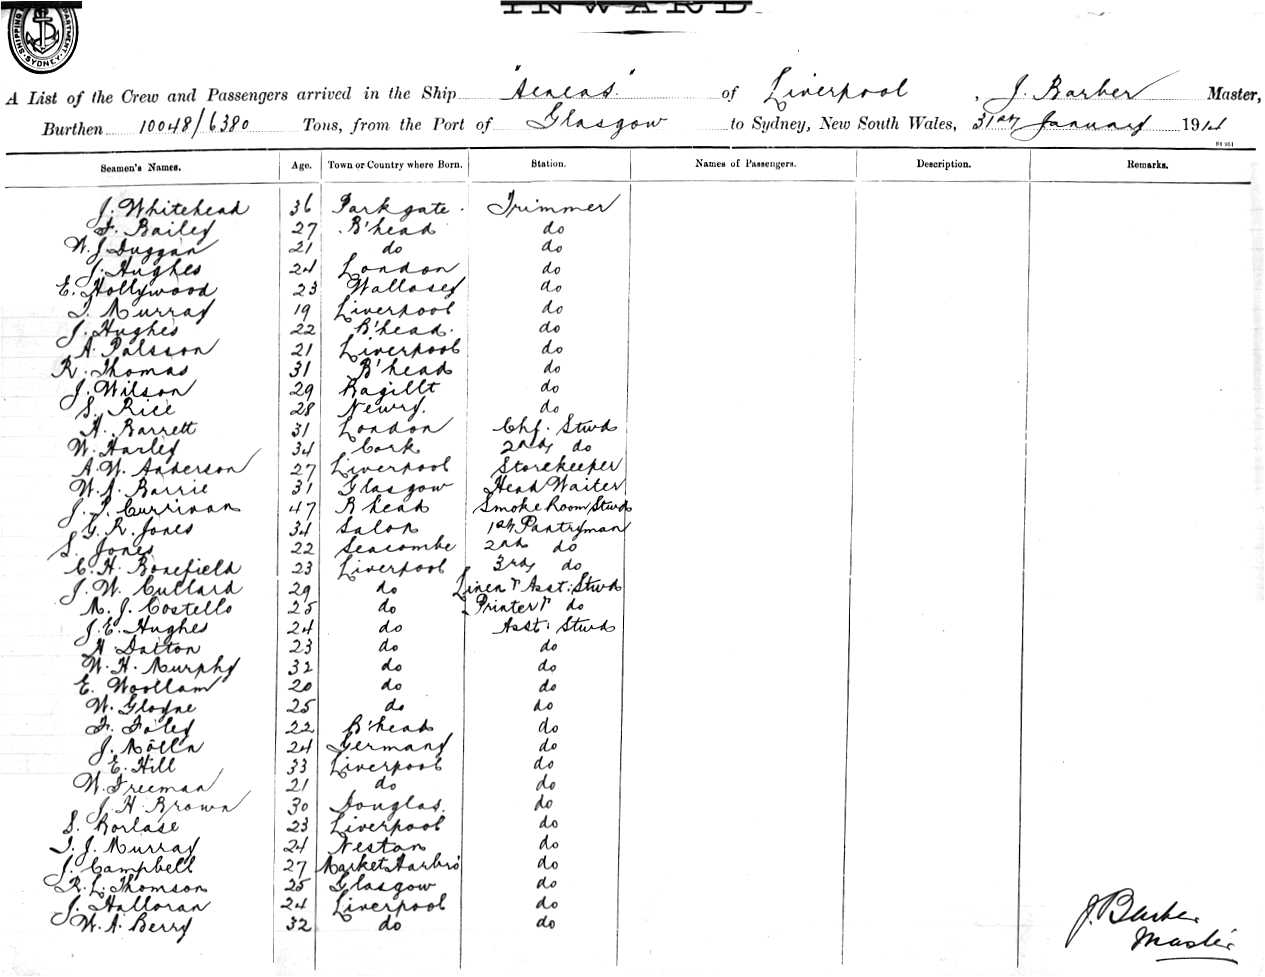 INWARD.
SHIPPING DEPARTMENT. SYDNEY.
A List of the Crew and Passengers arrived in the Ship "Aeneas" of Liverpool, J. Barber Master,
Burthen 10048/6380 Tons, from the Port of Glasgow to Sydney, New South Wales, 31st January 1914
Seamen's Names. Age. Town or Country where Born. Station. Names of Passengers. Description. Remarks.
J. Whitehead 36 Parkgate. Trimmer
F. Bailey 27 B'head do
W. J. Duggan 21 do do
J. Hughes 24 London do
E. Hollywood 23 Wallasey do
T. Murray 19 Liverpool do
J. Hughes 22 B'head. do
A. Palsson 21 Liverpool do
R. Thomas 31 B'head do
J. Wilson 29 Bagillt do
S. Rice 28 Newry. do
A. Barrett 31 London Chf. Stwd
W. Harley 34 Cork 2nd do
A. W. Anderson 27 Liverpool Storekeeper
W. A. Barrie 31 Glasgow Head Waiter
J. P. Currivan 47 B'head Smoke Room Stwd
G. R. Jones 34 Salop 1st Pantryman
S. Jones 22 Seacombe 2nd do
C. H. Bonefield 23 Liverpool 3rd do
J. W. Cullard 29 do Linen & Asst: Stwd
M. J. Costello 25 do Printer & do
J. E. Hughes 24 do Asst: Stwd
H Dalton 23 do do
W. H. Murphy 32 do do
E. Woollam 20 do do
W. Gloyne 25 do do
F. Foley 22 B'head do
J. Mölln 24 Germany do
E. Hill 33 Liverpool do
W. Freeman 21 do do
J. H Brown 30 Douglas. do
S. Borlase 23 Liverpool do
T. J. Murray 24 Neston do
J. Campbell 27 Market Harbro' do
R. L. Thomson 25 Glasgow do
J. Halloran 24 Liverpool do
W. A. Berry 32 do do
J. Barber
Master